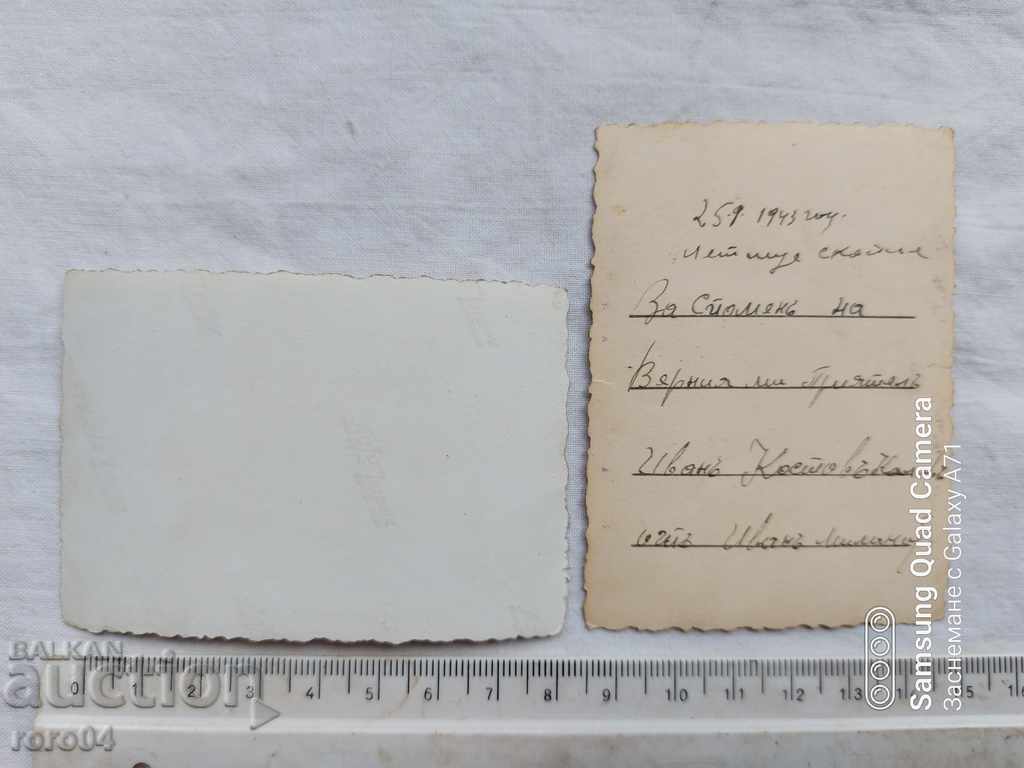 25.9 1943 год.
летище
За Спомень на
Верния ми Приятель
Иванъ Костовъ
отъ Иванъ
BALKAN
auction
roro04
0 1 2 3 4 5 6 7 8 9 10 11 12 13 14 15 16
Samsung Quad Camera
Заснемане с Galaxy A71